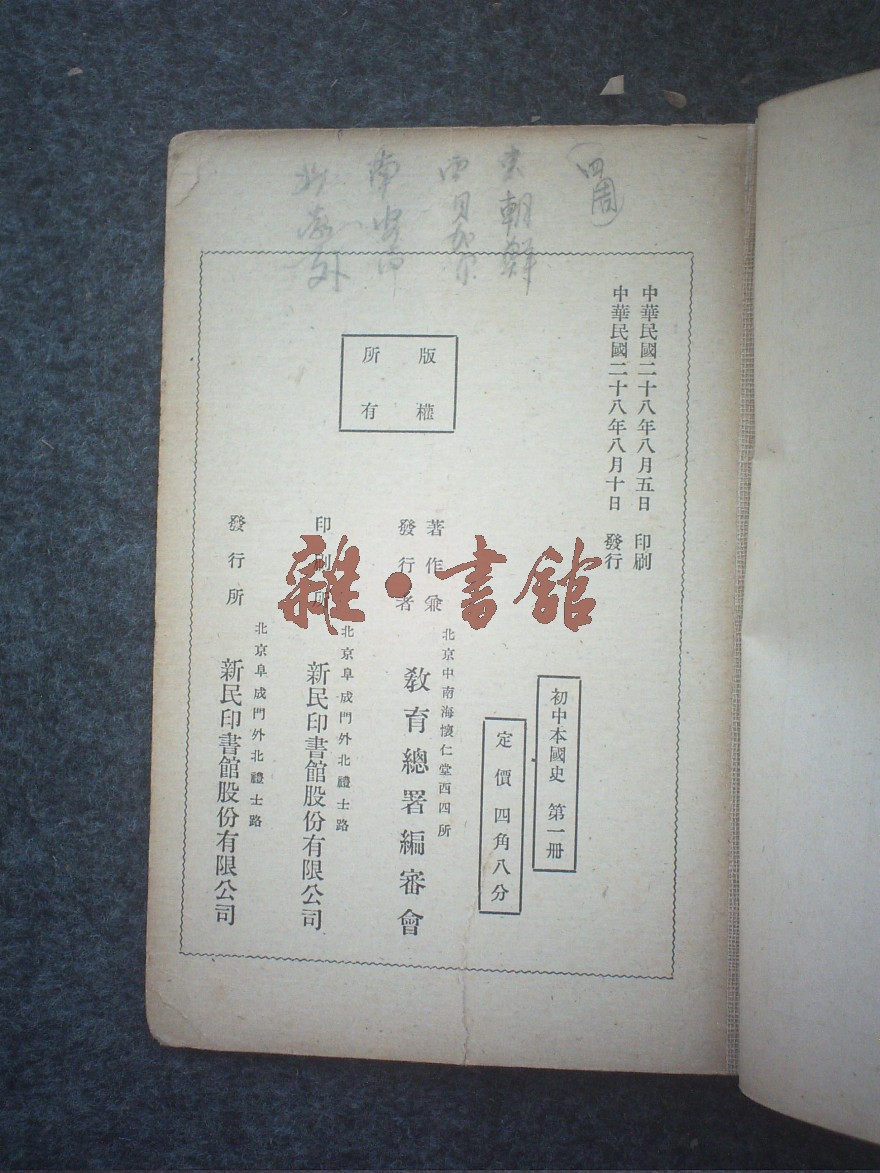 四周
東朝鮮
西貝加尔
南
北
中華民國二十八年八月五日 印刷
中華民國二十八年八月十日 發行
初中本國史 第一册
定價四角八分
版權
所有
著作兼
發行者
北京中南海懷仁堂西四所
教育總署編審會
印刷所
北京阜成門外北禮士路
新民印書館股份有限公司
發行所
北京阜成門外北禮士路
新民印書館股份有限公司
雜·書館